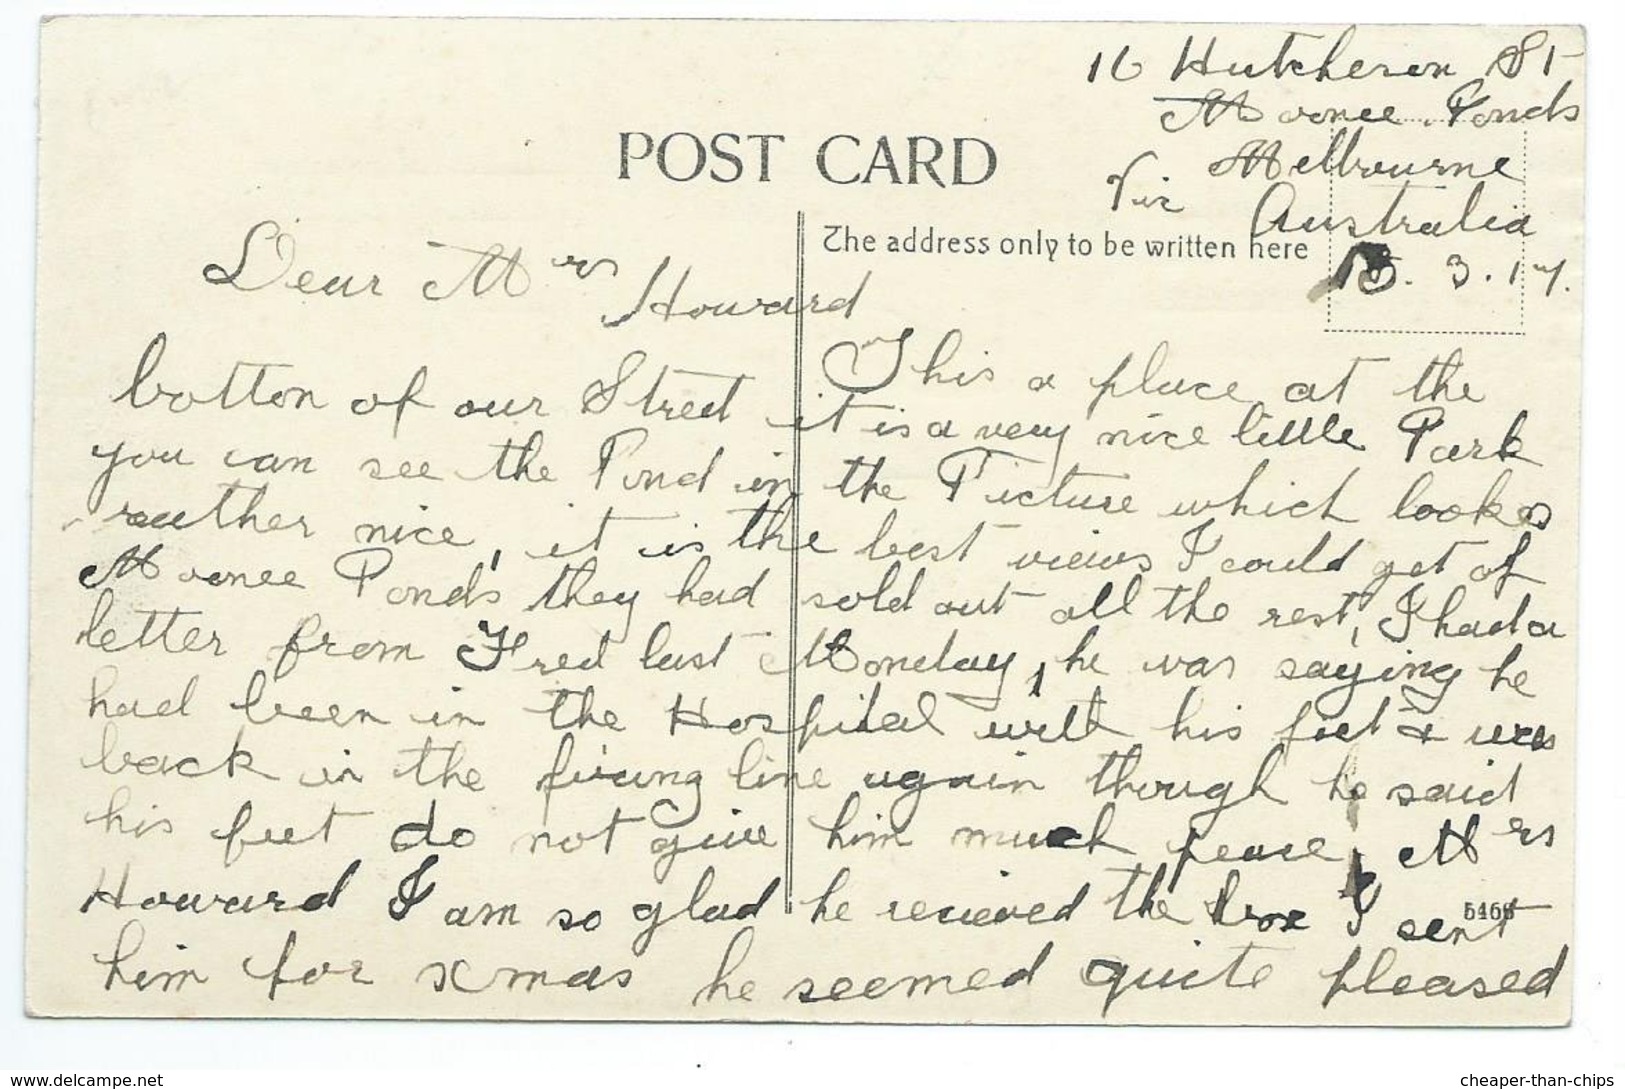 16 Hutcheson St
Moonee Ponds
Melbourne
Vic Australia
15.3.17.
POST CARD
The address only to be written here
Dear Mrs Howard
This a place at the
botton of our Street it is a very nice little Park
you can see the Pond in the Picture which looks
rauther nice, it is the best views I could get of
Moonee Ponds they had sold out all the rest, I had a
letter from Fred last Monday, he was saying he
had been in the Hospital with his feet & was
back in the fireing line again though he said
his feet do not give him much peace, Mrs
Howard I am so glad he recieved the box I sent
5468
him for xmas he seemed quite pleased
delcampe.net
cheaper-than-chips